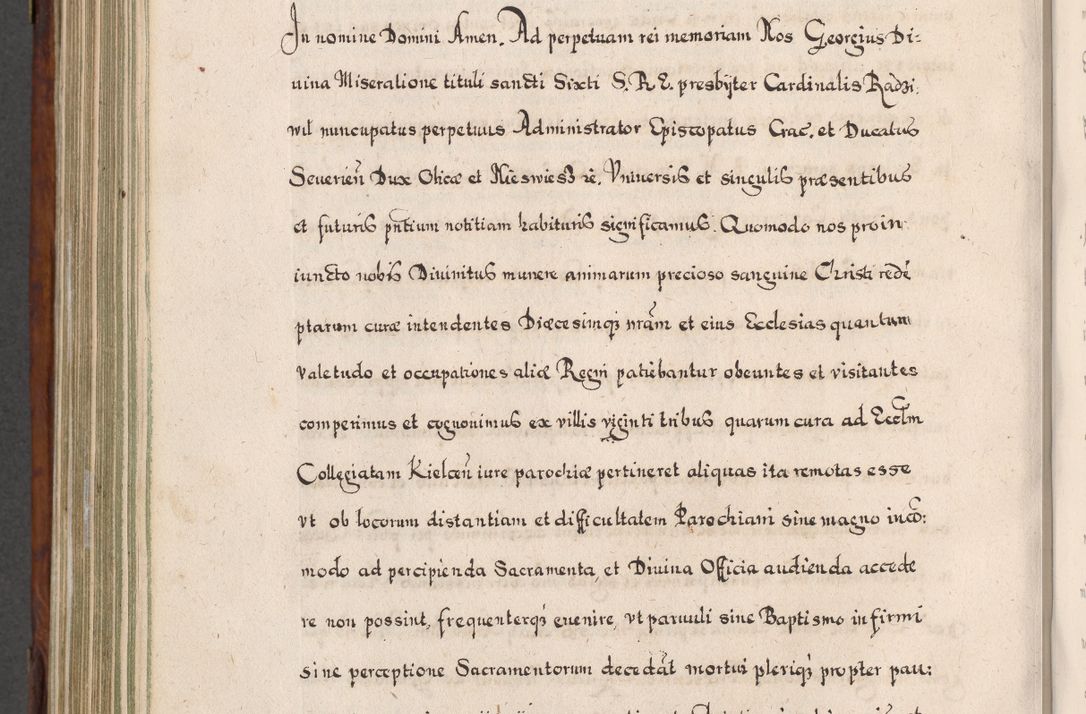 In nomine Domini Amen. Ad perpetuam rei memoriam Nos Georgius Di-
uina Miseratione tituli sancti Sixti S. R. E. presbÿter Cardinalis Radzi:
wil nuncupatus perpetuus Administrator Episcopatus Crac. et Ducatus
Seuerień Dux Olicæ et Nieswiesz ic. Vniuersis et singulis præsentibus
et futuris pn̄tium notitiam habituris significamus. Quomodo nos proin
iuncto nobis Diuinitus munere animarum precioso sanguine Christi redē
ptarum curæ intendentes Diæcesimqȝ nr̄am et eius Ecclesias quantum
valetudo et occupationes aliæ Regni patiebantur obeuntes et visitantes
comperimus et cognouimus ex villis viginti tribus quarum cura ad Eccl̄m
Collegiatam Kielceń iure parochiæ pertineret aliquas ita remotas esse
vt ob locorum distantiam et difficultatem Parochiani sine magno incō:
modo ad percipienda Sacramenta, et Diuina Officia audienda accede
re non possint, frequenterqȝ euenire, vt paruuli sine Baptismo infirmi
sine perceptione Sacramentorum decedāt mortui pleriqȝ propter pau: